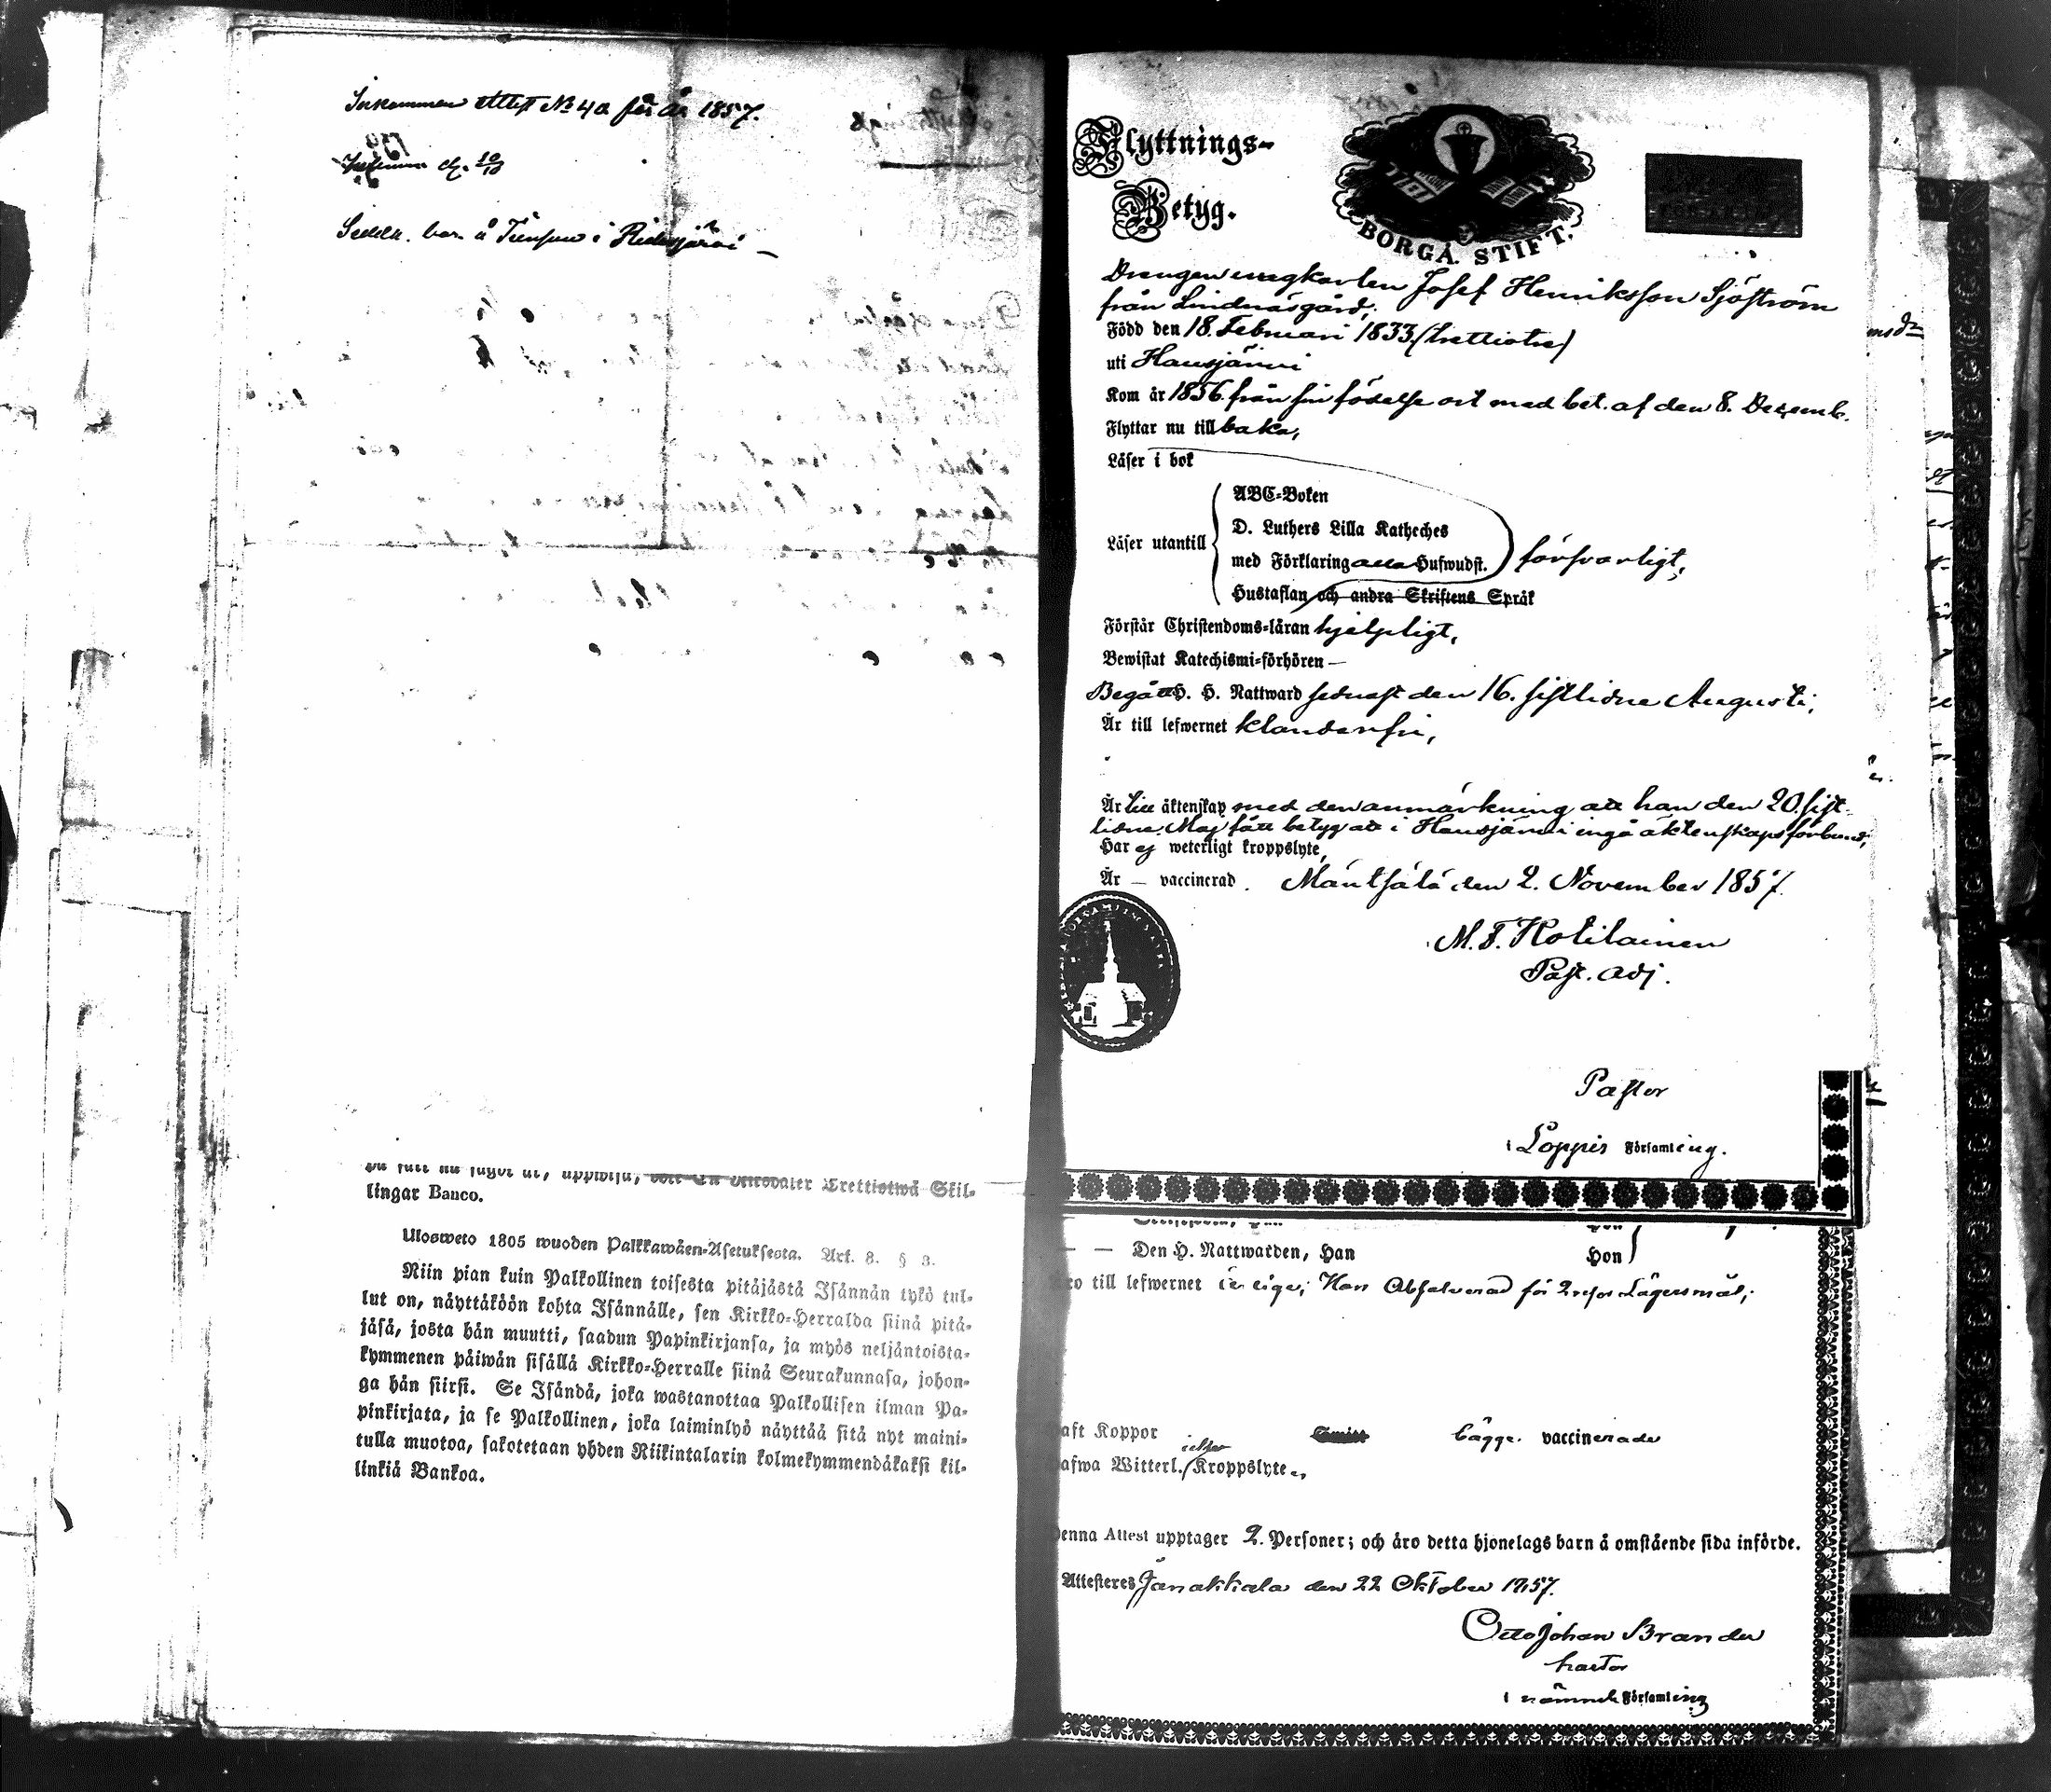 Inkommen attest No 40 för år 1857.
i Riihisjärvi
lingar Banco.
Ulosweto 1805 wuoden Palkkawäen-Asetuksesta. Art. 8. § 3.
Niin pian kuin Palkollinen toisesta pitäjästä Isännän tykö tul-
lut on, näyttäköön kohta Isännälle, sen Kirkko-Herralda siinä pitä-
jäsä, josta hän muutti, saadun Papinkirjansa, ja myös neljäntoista-
kymmenen päiwän sisällä Kirkko-Herralle siinä Seurakunnasa, johon-
ga hän siirsi. Se Isändä, joka wastanottaa Palkollisen ilman Pa-
pinkirjata, ja se Palkollinen, joka laiminlyö näyttää sitä nyt maini-
tulla muotoa, sakotetaan yhden Riikintalarin kolmekymmendäkaksi kil-
linkiä Bankoa.
Flyttnings-
Betyg.
BORGÅ STIFT.
Drengen ungkarlen Josef Henriksson Sjöström
från Lindnäsgård,
Född den 18. Februari 1833 (trettiotre)
uti Hausjärvi
Kom år 1856 från sin födelse ort med bet. af den 8. Decemb.
Flyttar nu tillbaka,
Läser i bok
Läser utantill
ABC-Boken
D. Luthers Lilla Katheches
med Förklaring alla Hufwudst.
Hustaflan och andra Skriftens Språk
försvarligt,
Förstår Christendoms-läran hjelpligt,
Bewistat Katechismi-förhören —
Begått H. H. Nattward sednast den 16. sistlidne Augusti,
Är till lefwernet klanderfri,
Är till äktenskap med den anmärkning att han den 20 sist-
lidne Maj fått betyg att i Hausjärvi ingå äktenskapsförbund,
Har ej weterligt kroppslyte,
Är — vaccinerad. Mäntsälä den 2. November 1857.
M. F. Kotilainen
Past. adj.
Pastor
i Loppis Församling.
— — Den H. Nattwarden, Han
Hon
till lefwernet
Han Absolverad för 2 resor Lägersmål,
aft Koppor
bägge vaccinerade
afwa Witterl. Kroppslyte
Denna Attest upptager 2. Personer; och äro detta hjonelags barn å omstående sida införde.
Attesteres Janakkala den 22 Oktober 1857.
Otto Johan Brander
i nämnde Församling